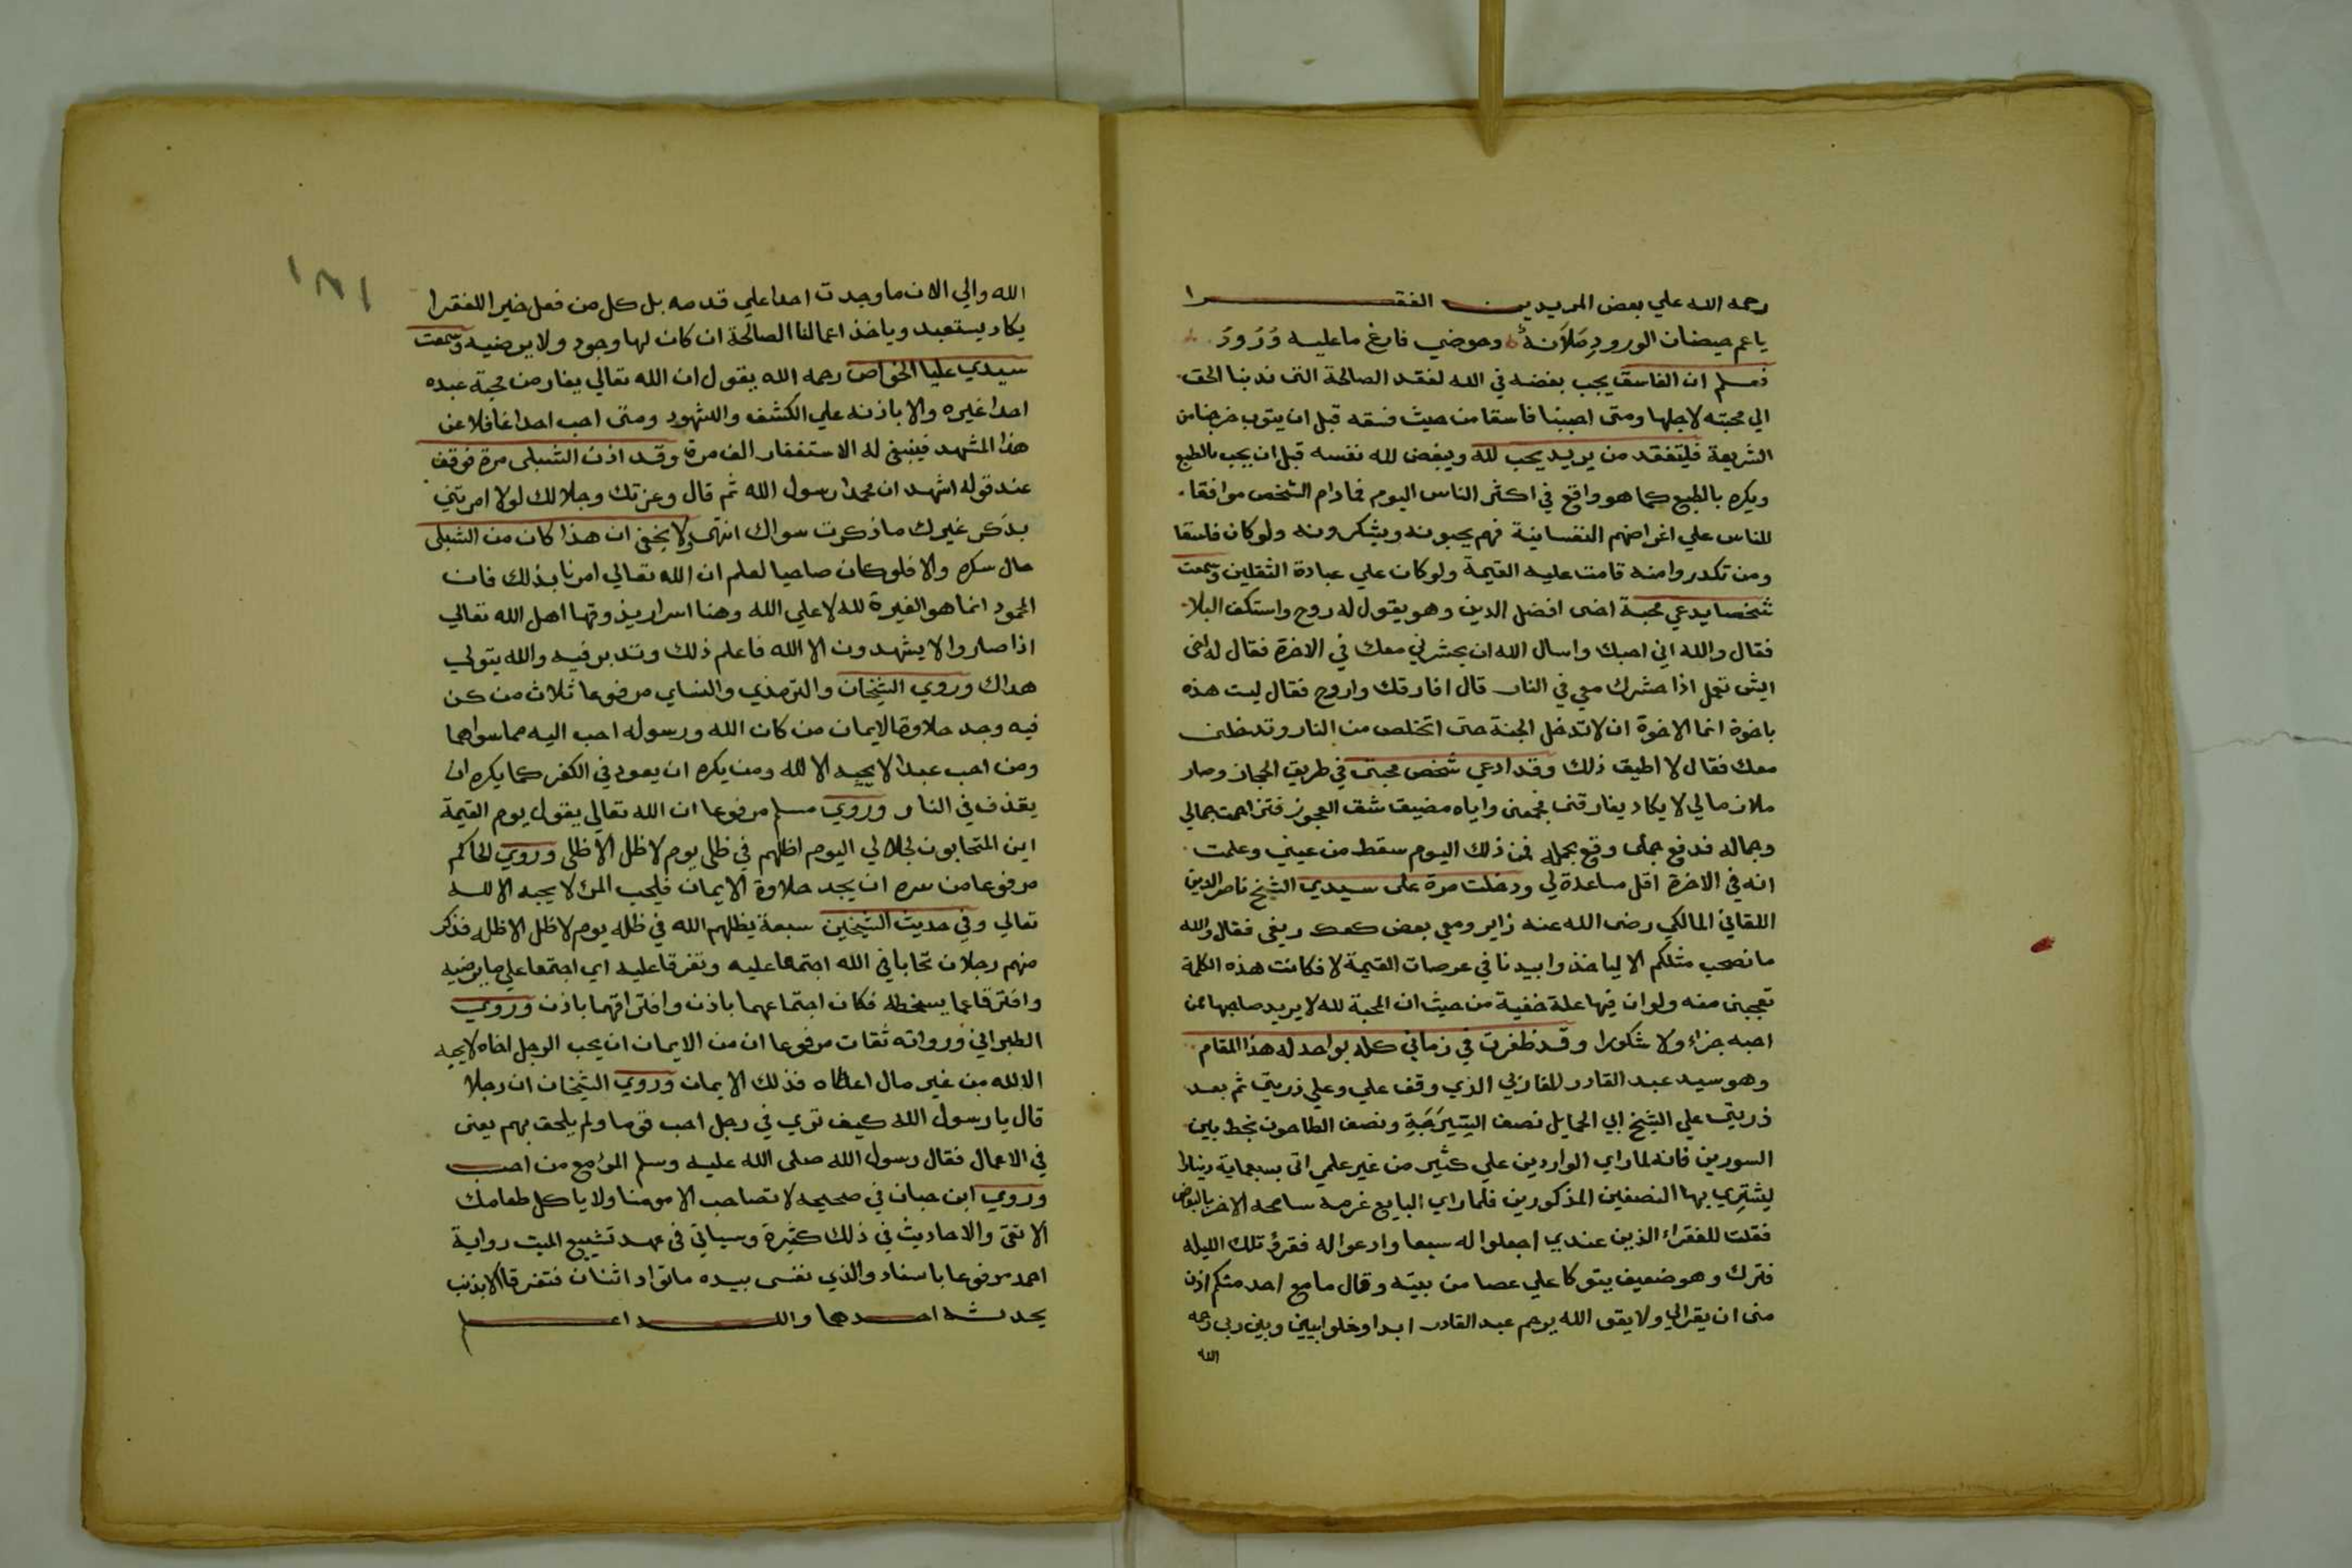 رحمه الله علي بعض المريدين الفقرا
ياعم حيضان الورود ملآنة وحوضي فارغ ما عليه ورود
فعلم ان الفاسق يجب بغضه في الله لفقد الصالحة التى ندبنا الحق
الي محبته لاجلها ومتى احببنا فاسقا من حيث فسقه قبل ان يتوب خرجنا من
الشريعة فليتفقد من يريد يحب لله ويبغض لله نفسه قبل ان يحب بالطبع
ويكره بالطبع كما هو واقع في اكثر الناس اليوم فما دام الشخص موافقا
للناس علي اغراضهم النفسانية فهم يحبونه ويشكرونه ولو كان فاسقا
ومن تكدروا منه قامت عليه القيمة ولو كان علي عبادة الثقلين وسمعت
شخصا يدعي محبة اخى افضل الدين وهو يقول له روح واستكف البلا
فقال والله اني احبك واسال الله ان يحشرني معك في الاخرة فقال له اخى
ايش تعمل اذا حشرك معي في النار قال افارقك واروح فقال ليست هذه
باخوة انما الاخوة ان لا تدخل الجنة حتى اتخلص من النار وتدخلنى
معك فقال لا اطيق ذلك وقد ادعي شخص محبتى في طريق الحجاز وصار
ملازما لي لا يكاد يفارقنى فجمعنى واياه مضيق شق العجوز فتزاحمت جمالي
وجماله فدفع جملى وقع بجمله فمن ذلك اليوم سقط من عيني وعلمت
انه في الاخرة اقل مساعدة لي ودخلت مرة على سيدي الشيخ ناصر الدين
اللقاني المالكي رضى الله عنه زاير ومعي بعض كعك ريفى فقال والله
ما نصحب مثلكم الا لياخذوا بيدنا في عرصات القيمة لا فكانت هذه الكلمة
تعجبنى منه ولو ان فيها علة خفية من حيث ان المحبة لله لا يريد صاحبها ممن
احبه جزاء ولا شكورا وقد ظفرت في زماني كله بواحد له هذا المقام
وهو سيد عبد القادر المغازلي الذي وقف علي وعلي ذريتي ثم بعد
ذريتي علي الشيخ ابي الحمايل نصف السيرجة ونصف الطاحون بخط بين
السورين فانه لما راي الواردين علي كثير من غير علمي اتى بسبعماية دينارا
ليشتري بها النصفين المذكورين فلما راي البايع غرمه سامحه الاخر بالبعض
فقلت للفقراء الذين عندي اجعلوا له سبعا وادعوا له فقرؤ تلك الليلة
فنزل وهو ضعيف يتوكا علي عصا من بيته وقال ما مع احد منكم اذن
منى ان يقرا لي ولا يقول الله يرحم عبد القادر ابدا وخلوا بيني وبين ربى رحمه
الله
١٨١
الله والي الان ما وجدت احدا علي قدمه بل كل من فعل خيرا للفقرا
يكاد يستعبد وياخذ اعمالنا الصالحة ان كان لها وجود ولا يرضيه وسمعت
سيدي عليا الخواص رحمه الله يقول ان الله تعالي يغار من محبة عبده
احدا غيره والا باذنه علي الكشف والشهود ومتى احب احدا غافلا عن
هذا المشهد فينبغى له الاستغفار الف مرة وقد اذن الشبلى مرة فوقف
عند قوله اشهد ان محمدا رسول الله ثم قال وعزتك وجلالك لولا امرتني
بذكر غيرك ما ذكرت سواك انتهى ولا يخفى ان هذا كان من الشبلى
حال سكره والا فلو كان صاحيا لعلم ان الله تعالي امرنا بذلك فان
المحمود انما هو الغيرة لله لا علي الله وهنا اسرار يذوقها اهل الله تعالي
اذا صاروا لا يشهدون الا الله فاعلم ذلك وتدبر فيه والله يتولي
هداك وروي الشيخان والترمذي والنساي مرفوعا ثلاث من كن
فيه وجد حلاوة الايمان من كان الله ورسوله احب اليه مما سواهما
ومن احب عبدا لا يحبه الا لله ومن يكره ان يعود في الكفر كما يكره ان
يقذف في النار وروي مسلم مرفوعا ان الله تعالي يقول يوم القيمة
اين المتحابون لجلالي اليوم اظلهم في ظلى يوم لا ظل الا ظلى وروي الحاكم
مرفوعا من سره ان يجد حلاوة الايمان فليحب المرء لا يحبه الا لله
تعالي وفي حديث الشيخين سبعة يظلهم الله في ظله يوم لا ظل الا ظله فذكر
منهم رجلان تحابا في الله اجتمعا عليه وتفرقا عليه اي اجتمعا علي ما يرضيه
وافترقا عما يسخطه فكان اجتماعهما باذن وافتراقهما باذن وروي
الطبراني ورواته ثقات مرفوعا ان من الايمان ان يحب الرجل اخاه لا يحبه
الا لله من غير مال اعطاه فذلك الايمان وروي الشيخان ان رجلا
قال يا رسول الله كيف تري في رجل احب قوما ولم يلحق بهم يعنى
في الاعمال فقال رسول الله صلى الله عليه وسلم المرء مع من احب
وروي ابن حبان في صحيحه لا تصاحب الا مومنا ولا ياكل طعامك
الا تقى والاحاديث في ذلك كثيرة وسياتي فى عهد تشييع الميت رواية
احمد مرفوعا باسناد والذي نفسى بيده ما تواد اثنان فتفرقا الا بذنب
يحدثه احدهما والله اعلم